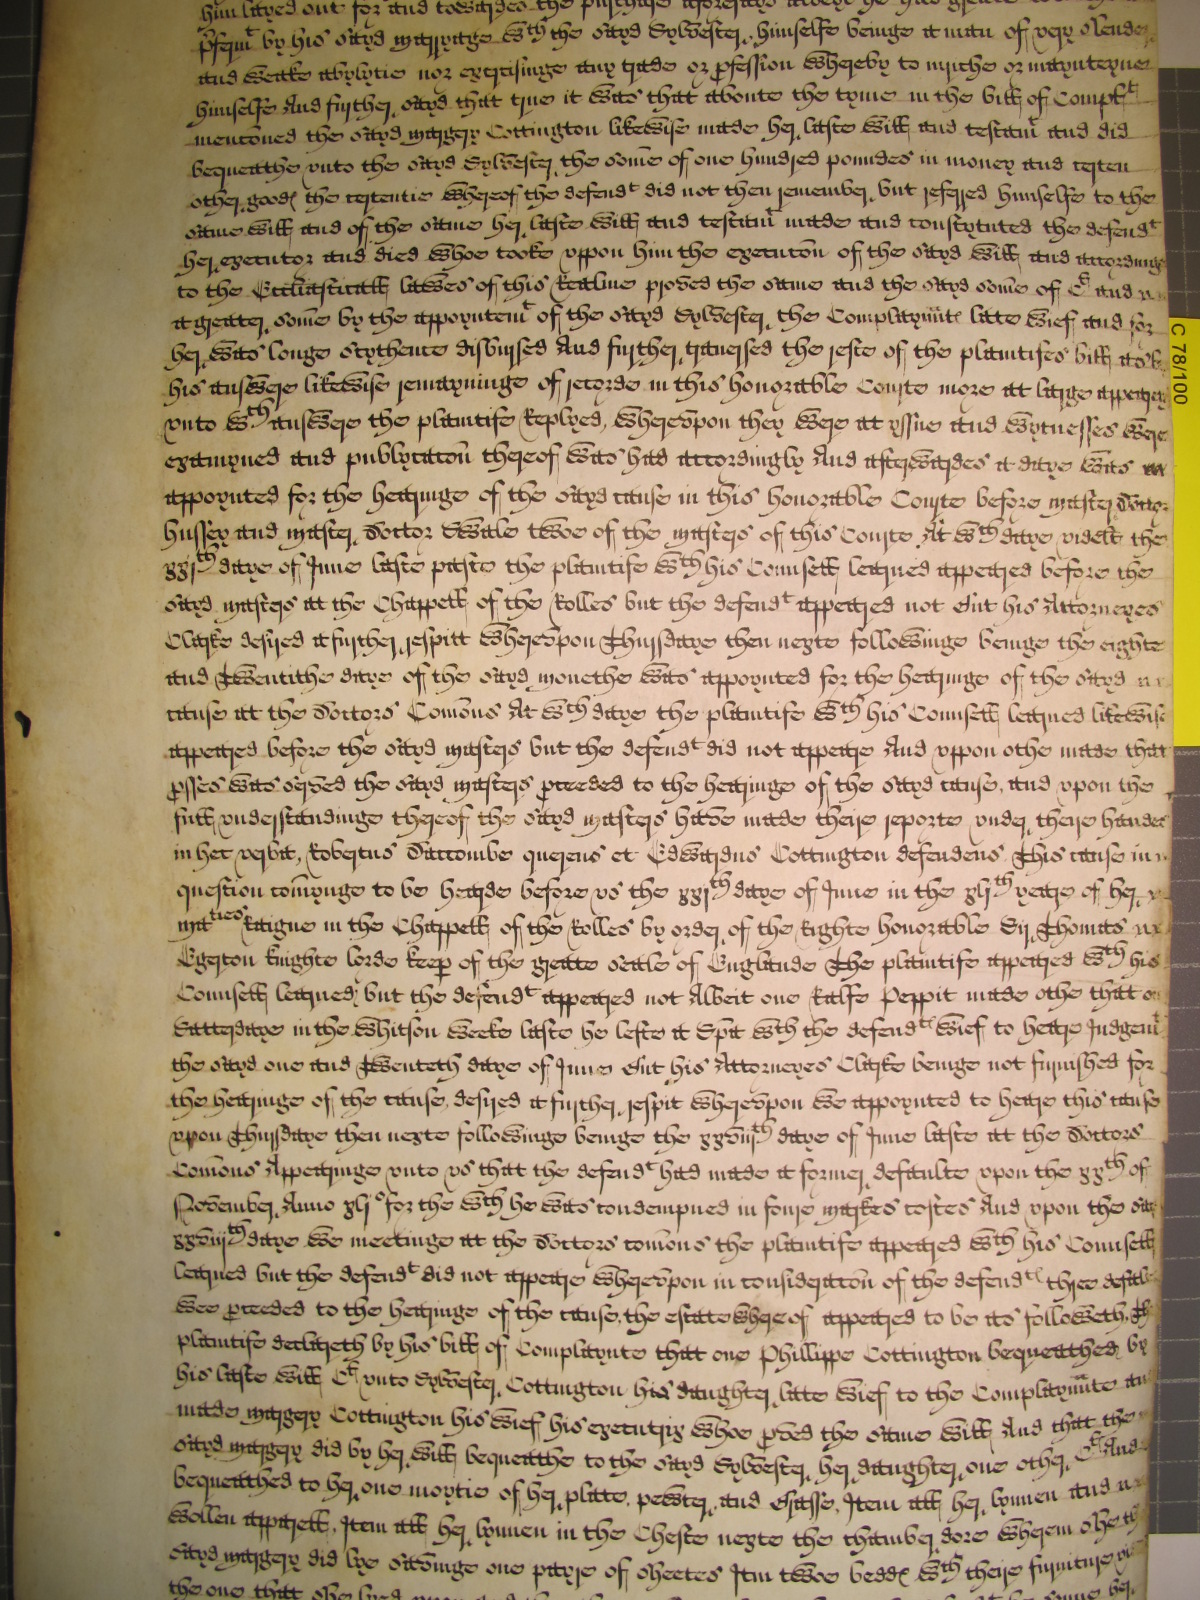 him layed out for and towardes the purchase aforesayd albeit he had
p̱ferm̃t by his sayd marryage wth the sayd Sylvester, himselfe beinge a man of very slender
and weake abylytie nor exercisinge any trade or p̱fession whereby to mytche or maynteyne
himselfe And further sayd that true it was that aboute the tyme in the bill of Complt
menc̃oned the sayd Margery Cottington likewise made her laste will and testam̃t and did
bequeathe vnto the sayd Sylvester the som̃e of one hundred poundes in money and certen
other good℮ the certentie whereof the defendt did not then remember, but referred himselfe to the
same will and of the same her laste will and testam̃t made and constytuted the defendt
her executor and died Whoe tooke vppon him the execuc̃on of the sayd will and accordinge
to the Eccliasticall lawes of this Realme proved the same and the sayd som̃e of Cli and
a greater som̃e by the appoyntem̃t of the sayd Sylvester the Complaynãt℮ late wief and for
her was longe sythence disbursed And further traversed the reste of the plaintifes bill as by
his answere likewise remayninge of recorde in this honorable Courte more at large appeareth
vnto wth answere the plaintife Replyed, wherevpon they were at yssue and wytnesses were
examyned and publycac̃on thereof was had accordingly And afterwardes a daye was
appoynted for the hearinge of the sayd cause in this honorable Courte before master Doctor
Hussey and master Doctor Swale twoe of the masters of this Courte At wth daye videlt the
xxjth daye of June laste paste the plaintife wth his Counsell learned appeared before the
sayd masters at the Chappell of the Rolles but the defendt appeared not But his Attorneyes
Clarke desyred a further respitt wherevpon Thursdaye then nexte followinge beinge the eighte
and Twentithe daye of the sayd monethe was appoynted for the hearinge of the sayd
cause at the Doctors Com̃ons At wth daye the plaintife wth his Counsell learned likewise
appeared before the sayd masters but the defendt did not appeare And vppon othe made that
p̱sses was served the sayd masters p̱ceeded to the hearinge of the sayd cause, and vpon the
full vnderstandinge thereof the sayd masters have made theire reporte vnder theire handes
in hec verba, Robertus Saccombe querens et Edwardus Cottington defendens This cause in
question com̃ynge to be hearde before vs the xxjth daye of June in the xljth yeare of her
maties Raigne in the Chappell of the Rolles by order of the Righte honorable Sir Thomas
Egerton knighte lorde keep̱ of the greate seale of Englande The plaintife appeared wth his
Counsell learned; but the defendt appeared not Albeit one Ralfe Peppit made othe that on
Satterdaye in the Whitson weeke laste he lefte a Sp̃a wth the defendt℮ wief to heare Judgem̃t
the sayd one and Twenteth daye of June But his Attorneyes Clarke beinge not furnished for
the hearinge of the cause, desyred a further respit wherevpon we appoynted to heare this cause
vpon Thursdaye then nexte followinge beinge the xxviijth daye of June laste at the Doctors
Com̃ons Appearinge vnto vs that the defendt had made a former defaulte vpon the xxth of
November Anno xljo for the wth he was condempned in foure markes costes And vpon the sayd
xxviijth daye we meetinge at the Doctors com̃ons the plaintife appeared wth his Counsell
learned but the defendt did not appeare wherevpon in considerac̃on of the defendt℮ three
wee p̱ceeded to the hearinge of the cause, the estate whereof appeared to be as followeth, The
plaintife declareth by his bill of Complaynte that one Phillippe Cottington bequeathed by
his laste will Cli vnto Sylvester Cottington his daughter late wief to the Complaynãte and
made Margery Cottington his wief his executrix whoe p̱ved the same will And that the
sayd Margery did by her will bequeathe to the sayd Sylvester her daughter one other Cli And
bequeathed to her one moytie of her platte, pewter and Brasse, Item all her lynnen and
wollen apparell, Item all her lynnen in the Cheste nexte the chamber dore wherein she the
sayd Margery did lye savinge one payre of sheetes Itm twoe bedd℮ wth theire furniture
the one that she lyed
C 78/100